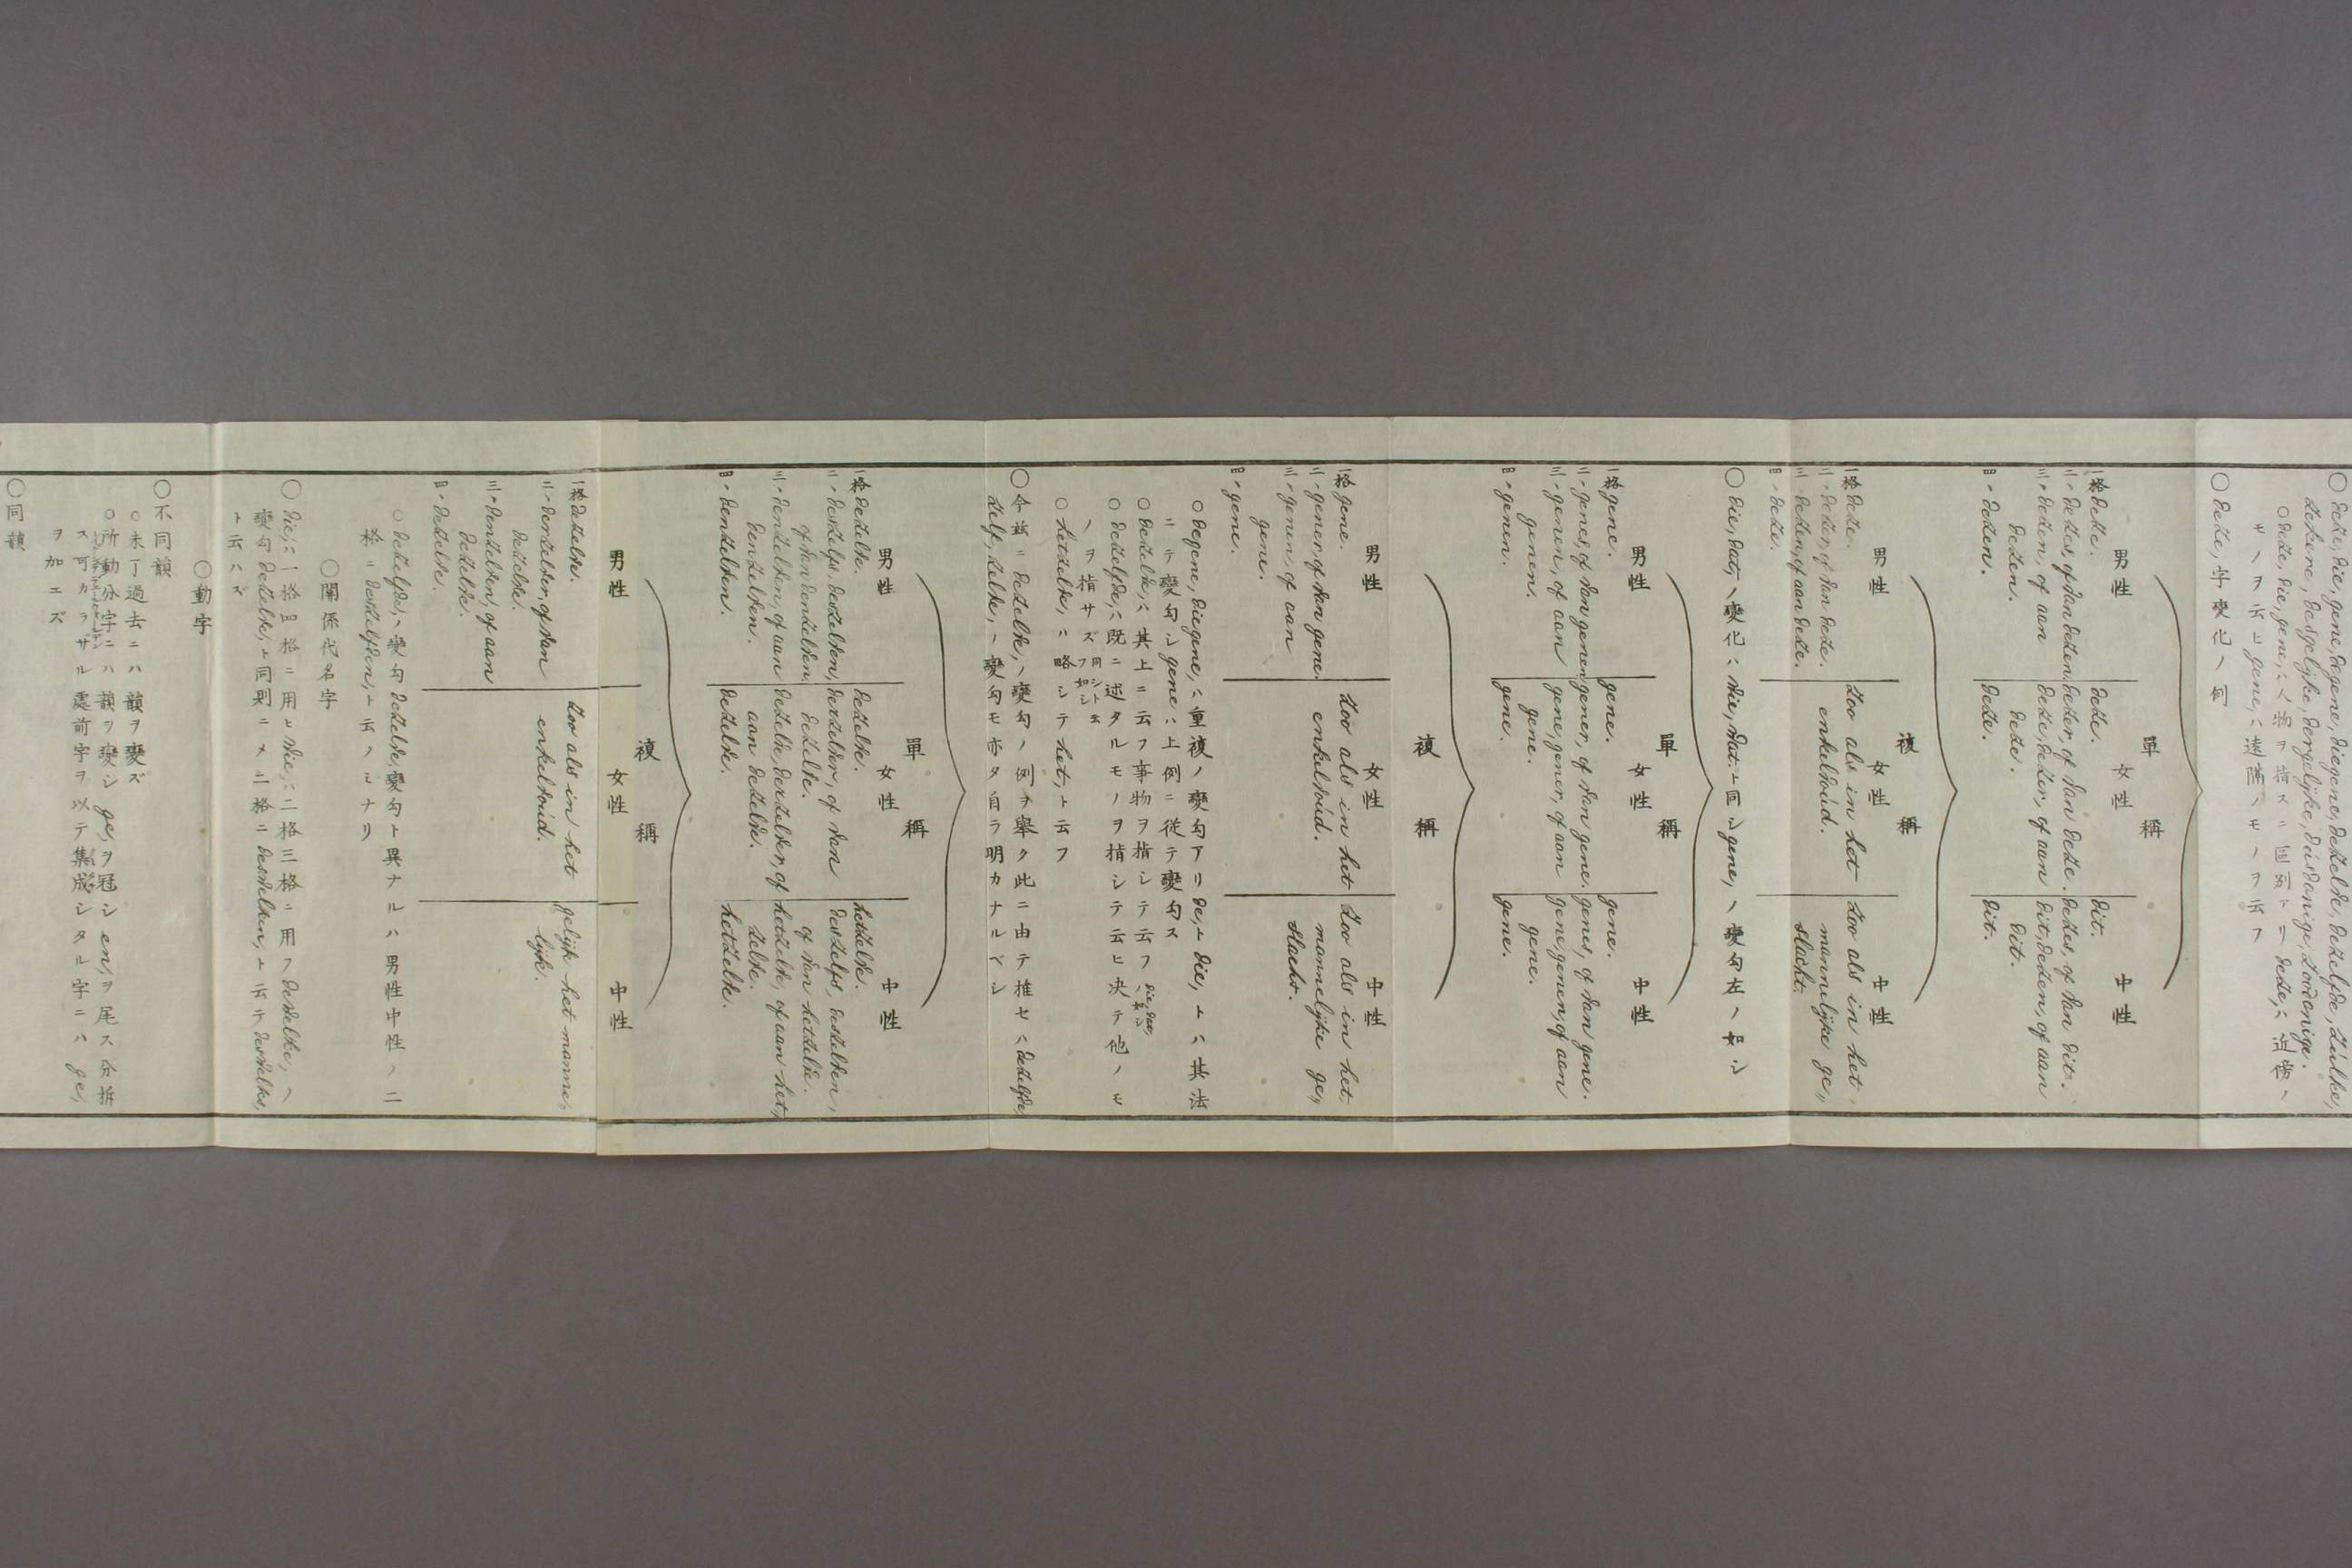 ○deze, die, gene, degene, diegene, dezelve, dezelfde, zulke,
zekere, desgelijke, dergelijke, dusdanige, zoodanige.
○deze, die, gene,ハ人物ヲ指スニ区別アリ deze,ハ近傍ノ
モノヲ云ヒ gene,ハ遠隔ノモノヲ云フ
○deze,字變化ノ例
單稱
男性 女性 中性
一格 deze. deze. dit.
二〃 dezes, of van dezen. dezer, of van deze. dezes, of van dit.
三〃 dezen, of aan dezen. deze, dezer, of aan deze. dit, dezen, of aan dit.
四〃 dezen. deze. dit.
複稱
男性 女性 中性
一格 deze. zoo als in het zoo als in het
二〃 dezer, of van deze. enkelvoud. mannelijke ge„
三〃 dezen, of aan deze. slacht.
四〃 deze.
○die, dat,ノ變化ハ wie, wat.ト同シ gene,ノ變勾左ノ如シ
單稱
男性 女性 中性
一格 gene. gene. gene.
二〃 genes, of van genen. gener, of van gene. genes, of van gene.
三〃 genen, of aan genen. gene, gener, of aan gene. gene, genen, of aan gene.
四〃 genen. gene. gene.
複稱
男性 女性 中性
一格 gene. zoo als in het zoo als in het
二〃 gener, of van gene. enkelvoud. mannelijke ge„
三〃 genen, of aan gene. slacht.
四〃 gene.
○degene, diegene,ハ重複ノ變勾アリ de,ト die,トハ其法
ニテ變勾シ gene ハ上例ニ從テ變勾ス
○dezelve,ハ其上ニ云フ事物ヲ指シテ云フ
○dezelfde,ハ既ニ述タルモノヲ指シテ云ヒ决テ他ノモ
ノヲ指サズ 同シト云フ如シ
○hetzelve,ハ略シテ het,ト云フ
○今茲ニ dezelve,ノ變勾ノ例ヲ擧ク此ニ由テ推セハ dezelfde,
zelf, zelve,ノ變勾モ亦タ自ラ明カナルベシ
單稱
男性 女性 中性
一格 dezelve. dezelve. hetzelve.
二〃 deszelfs, deszelven, of van denzelven. derzelver, of van dezelve. deszelfs, deszelven, of van hetzelve.
三〃 denzelven, of aan denzelven. dezelve, derzelver, of aan dezelve. hetzelve, of aan het„zelve.
四〃 denzelven. dezelve. hetzelve.
複稱
男性 女性 中性
一格 dezelve. zoo als in het gelijk het manne„
二〃 derzelver, of van dezelve. enkelvoud. lijk.
三〃 denzelven, of aan dezelve.
四〃 dezelve.
○dezelfde,ノ變勾 dezelve,變勾ト異ナルハ男性中性ノ二
格ニ deszelfden,ト云ノミナリ
○關係代名字
○die,ハ一格四格ニ用ヒ wie,ハ二格三格ニ用フ dewelke,ノ
變勾 dezelve,ト同則ニメ二格ニ deswelken,ト云テ deswelks,
ト云ハズ
○動字
○不同韻
○未丁過去ニハ韻ヲ變ズ
○所動分字ニハ韻ヲ變シ ge,ヲ冠シ en,ヲ尾ス分拆
ス可カラサル處前字ヲ以テ集成シタル字ニハ ge,
ヲ加エズ
○同韻